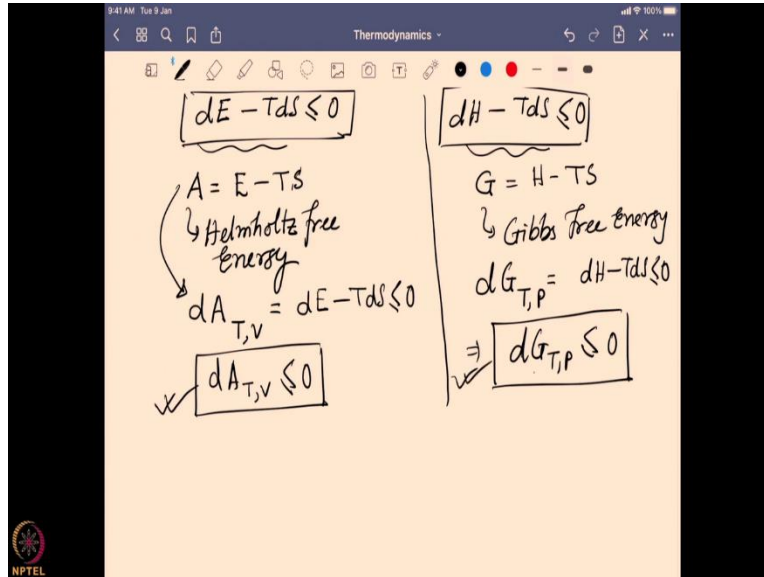 9:41 AM Tue 9 Jan
100%
Thermodynamics
T
dE - TdS ≤ 0
A = E - TS
↳ Helmholtz free
Energy
dA_{T,V} = dE - TdS ≤ 0
dA_{T,V} ≤ 0
dH - TdS ≤ 0
G = H - TS
↳ Gibbs free Energy
dG_{T,P} = dH - TdS ≤ 0
⇒ dG_{T,P} ≤ 0
NPTEL